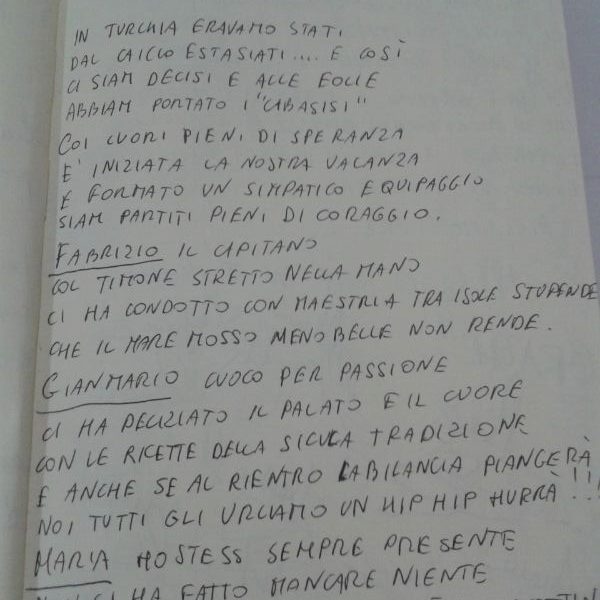 IN TURCHIA ERAVAMO STATI
DAL CAICCO ESTASIATI.... E COSÌ
CI SIAM DECISI E ALLE EOLIE
ABBIAM PORTATO I "CIBASISI"
COI CUORI PIENI DI SPERANZA
E' INIZIATA LA NOSTRA VACANZA
E FORMATO UN SIMPATICO EQUIPAGGIO
SIAM PARTITI PIENI DI CORAGGIO.
FABRIZIO IL CAPITANO
COL TIMONE STRETTO NELLA MANO
CI HA CONDOTTO CON MAESTRIA TRA ISOLE STUPENDE
CHE IL MARE MOSSO MENO BELLE NON RENDE.
GIANMARIO CUOCO PER PASSIONE
CI HA DELIZIATO IL PALATO E IL CUORE
CON LE RICETTE DELLA SICULA TRADIZIONE
E ANCHE SE AL RIENTRO LA BILANCIA PIANGERÀ
NOI TUTTI GLI URLIAMO UN HIP HIP HURRÀ!!!
MARIA HOSTESS SEMPRE PRESENTE
NON CI HA FATTO MANCARE NIENTE